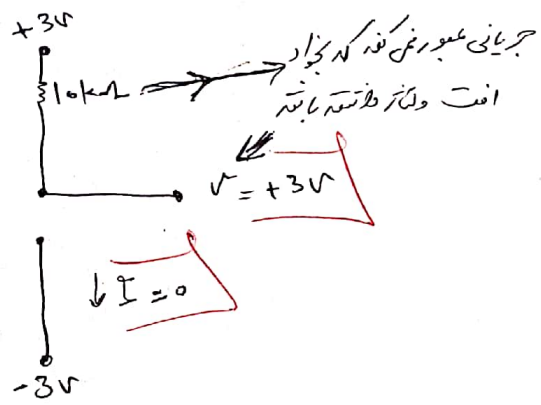 +3v
10kΩ
جریانی عبور نمی کند که بخواد
افت ولتاژ داشته باشد
V = +3v
↓ I = 0
-3v